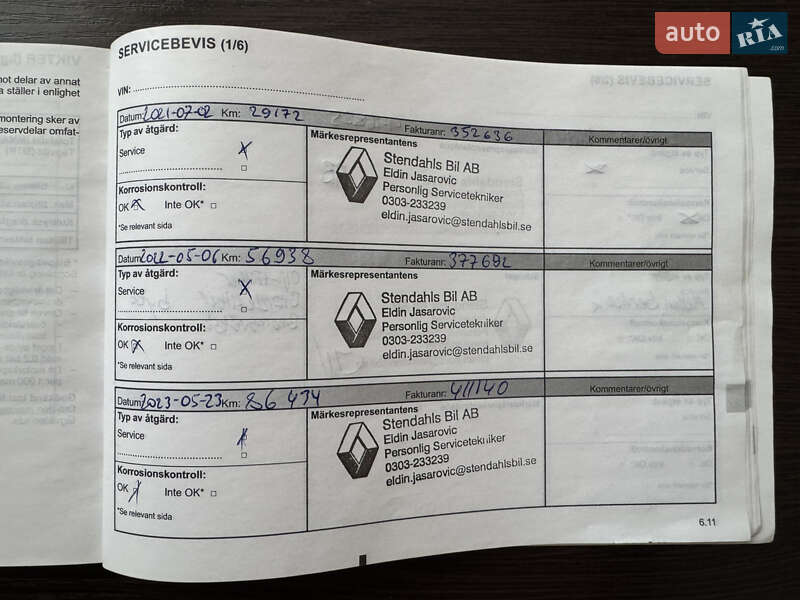 auto RIA .com
not delar av annat
a ställer i enlighet
montering sker av
eservdelar omfat-
SERVICEBEVIS (1/6)
VIN:
Datum: 2021-07-02 Km: 29172 Fakturanr: 352636
Typ av åtgärd: Märkesrepresentantens Kommentarer/övrigt
Service X
Stendahls Bil AB
Eldin Jasarovic
Personlig Servicetekniker
0303-233239
eldin.jasarovic@stendahlsbil.se
Korrosionskontroll:
OK X Inte OK*
*Se relevant sida
Datum: 2022-05-06 Km: 56938 Fakturanr: 377692
Typ av åtgärd: Märkesrepresentantens Kommentarer/övrigt
Service X
Stendahls Bil AB
Eldin Jasarovic
Personlig Servicetekniker
0303-233239
eldin.jasarovic@stendahlsbil.se
Korrosionskontroll:
OK X Inte OK*
*Se relevant sida
Datum: 2023-05-23 Km: 86 434 Fakturanr: 411140
Typ av åtgärd: Märkesrepresentantens Kommentarer/övrigt
Service X
Stendahls Bil AB
Eldin Jasarovic
Personlig Servicetekniker
0303-233239
eldin.jasarovic@stendahlsbil.se
Korrosionskontroll:
OK X Inte OK*
*Se relevant sida
6.11